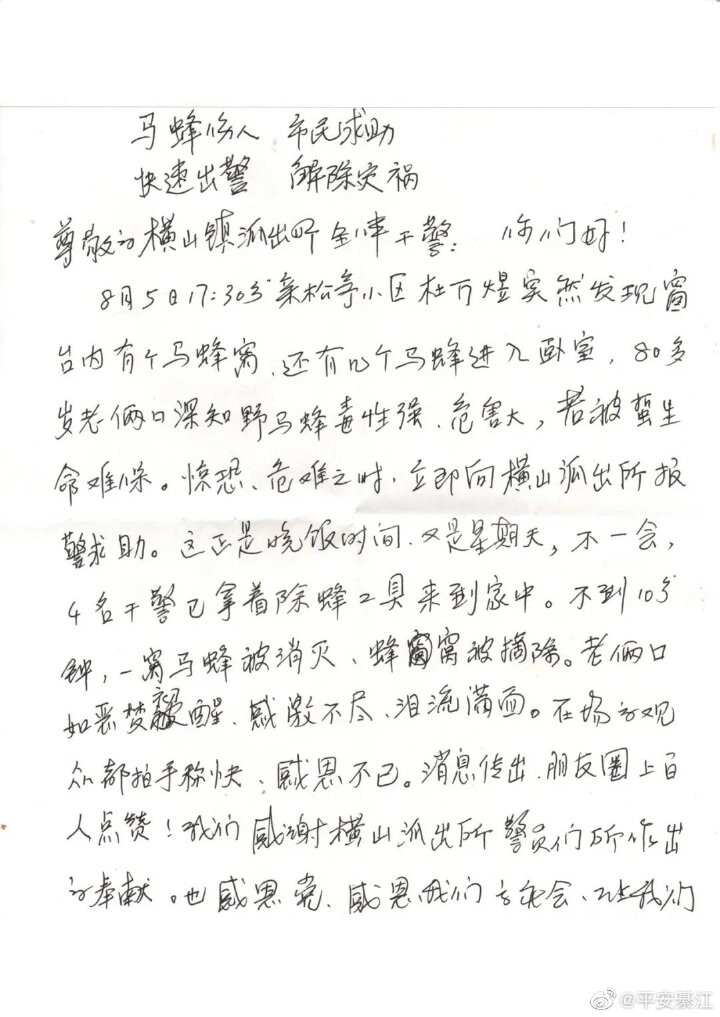 马蜂伤人 市民求助
快速出警 解除灾祸
尊敬的横山镇派出所全体干警: 你们好!
8月5日17:30分 松亭小区杜万煜突然发现窗
台内有个马蜂窝、还有几个马蜂进入卧室,80多
岁老俩口深知野马蜂毒性强、危害大,若被蜇生
命难保。惊恐、危难之时、立即向横山派出所报
警求助。这正是晚饭时间、又是星期天,不一会,
4名干警已拿着除蜂工具来到家中。不到10分
钟,一窝马蜂被消灭、蜂窝被摘除。老俩口
如恶梦醒、感激不尽、泪流满面。在场的观
众都拍手称快、感恩不已。消息传出、朋友圈上百
人点赞!我们感谢横山派出所警员们所作出
的奉献。也感恩党、感恩我们的社会、让我们
@平安綦江